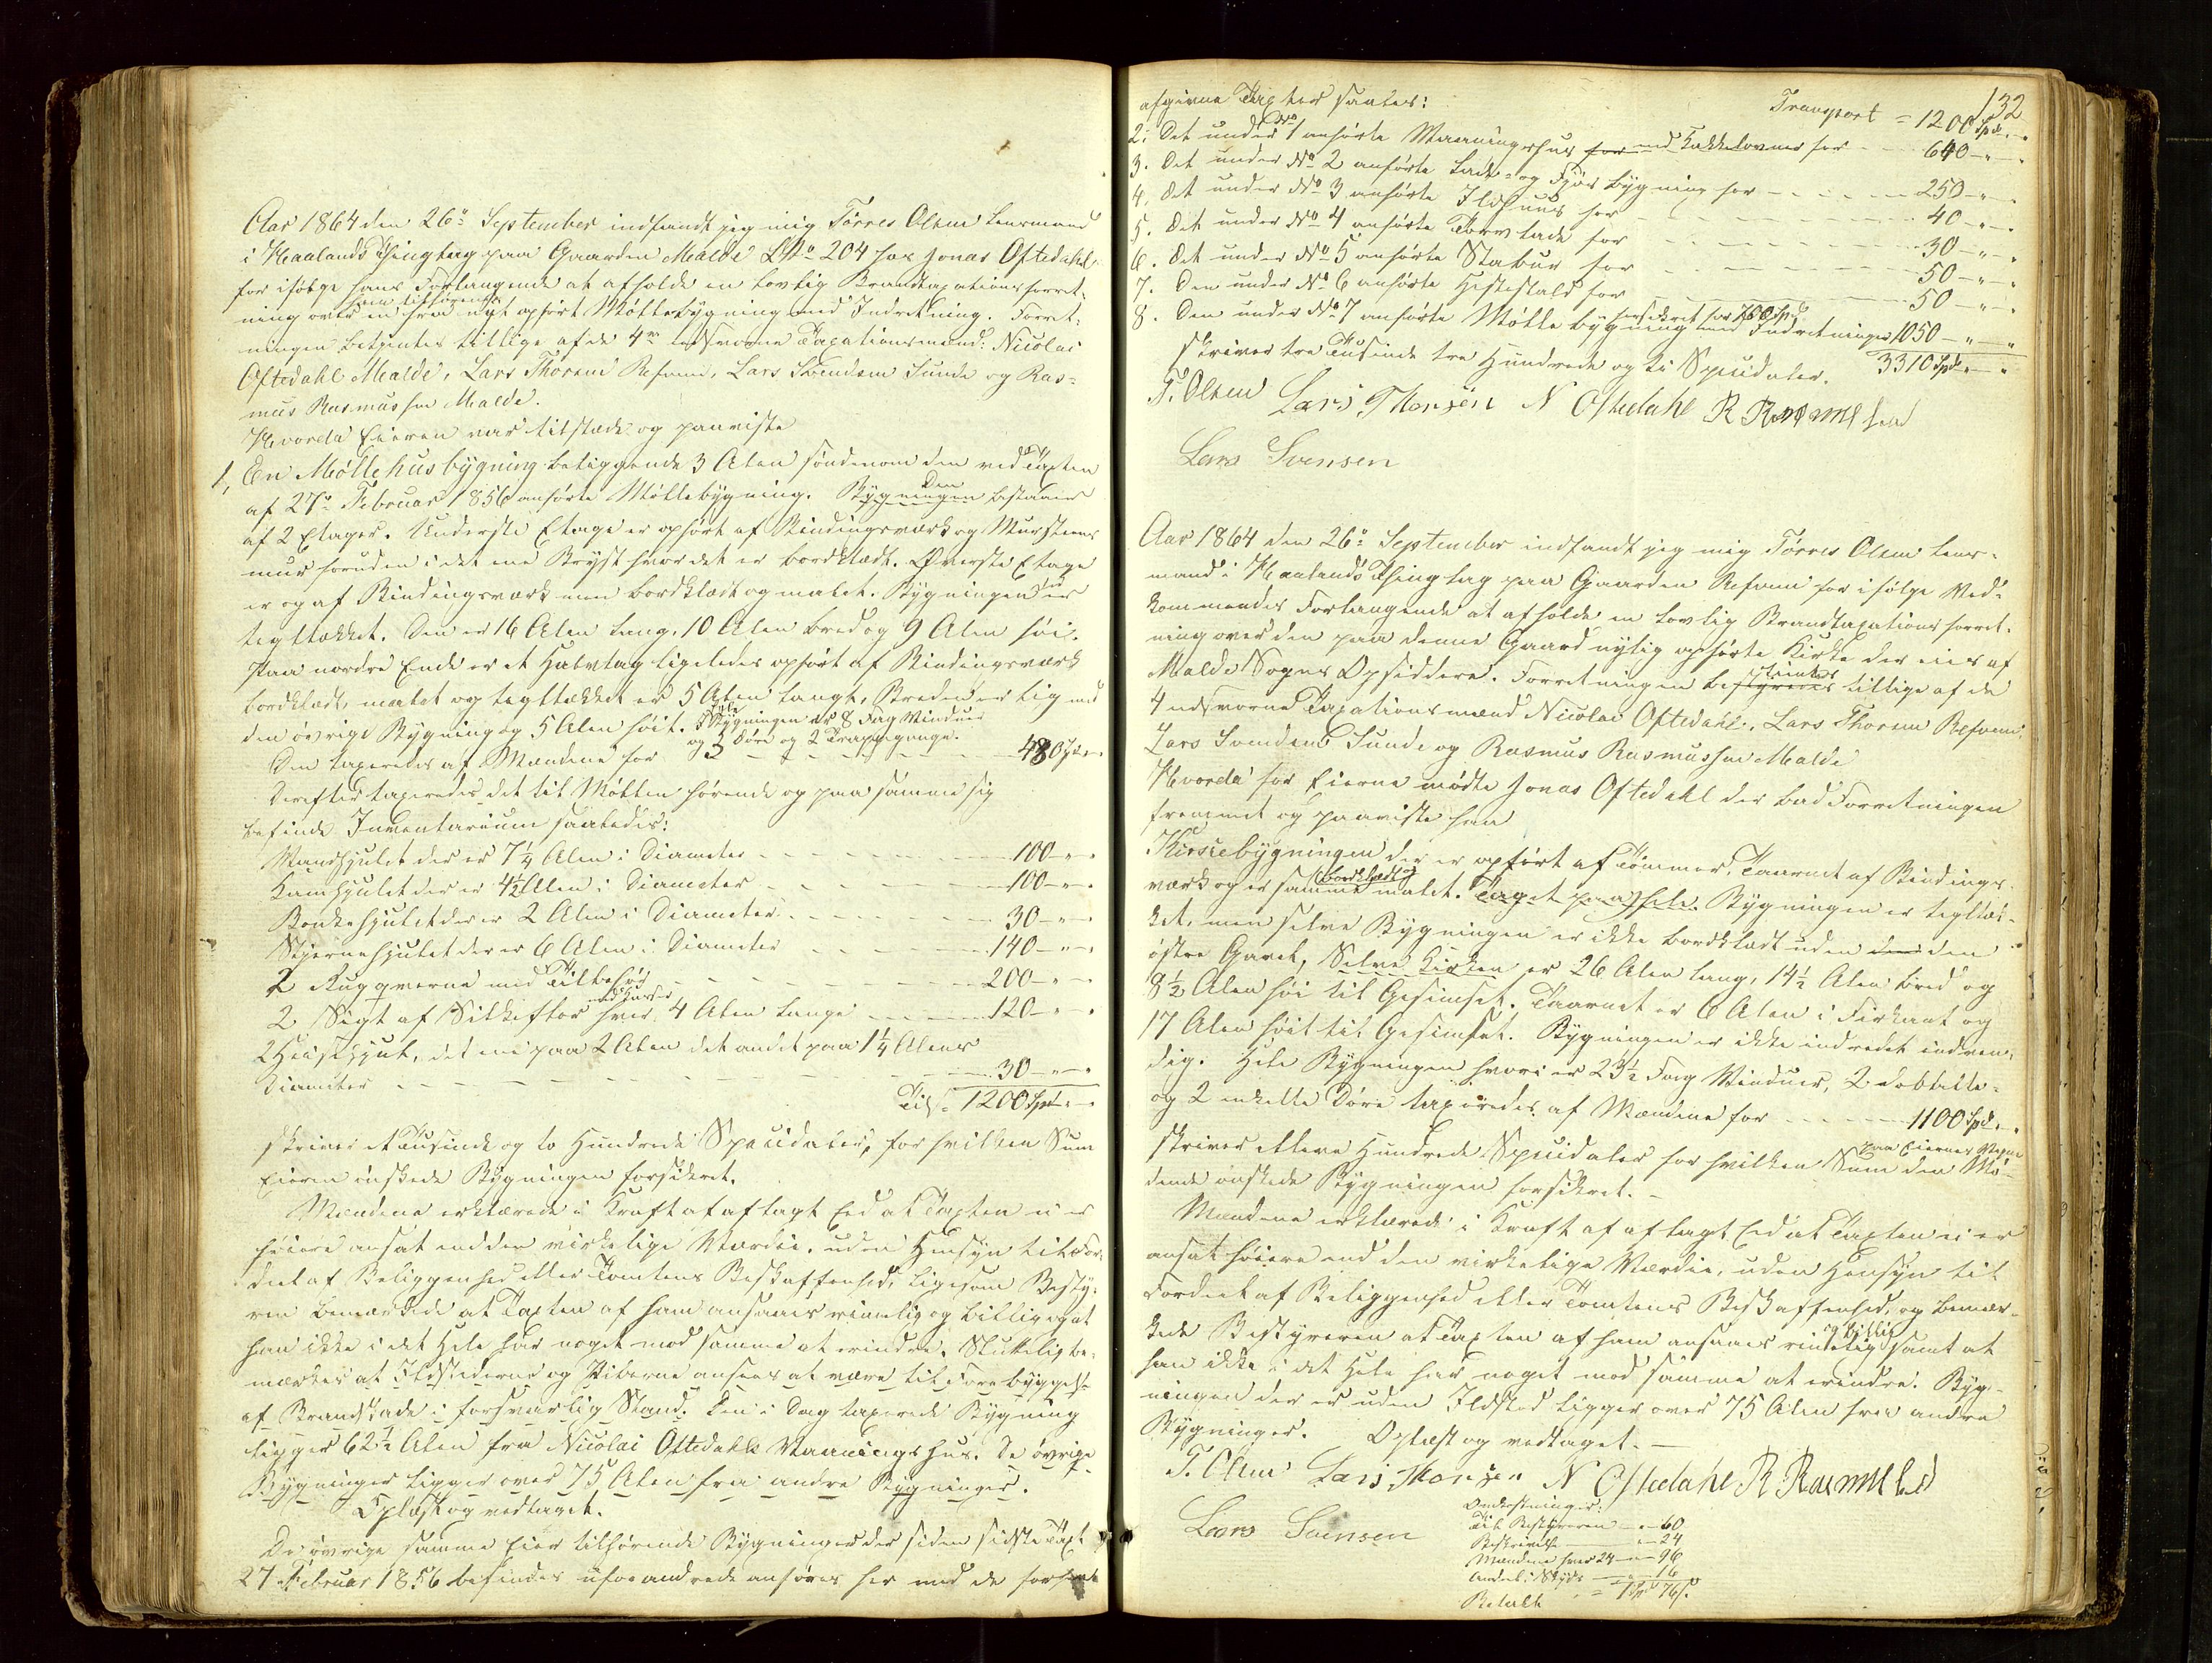 Aar 1864 den 26de September indfandt jeg mig Tørres Olsen Lensmand
i Haalands Thinglag paa Gaarden Malde LNo 204 hos Jonas Oftedahl
for ifølge hans Forlangende at afholde en lovlig Brandtaxationsforret-
ning over en ham tilhørende nyt opført Møllebygning med Indretning. Forret-
ningen betjentes tillige af de 4re edsvorne Taxationsmænd: Nicolai
Oftedahl Malde, Lars Thorsen Refsnes, Lars Svendsen Sunde og Ras-
mus Rasmussen Malde.
Hvorda Eieren var tilstæde og paaviste
1, En Møllehusbygning beliggende 3 Alen søndenom den ved Taxten
af 27de Februar 1856 anførte Møllebygning. Bygningen bestaaer
af 2 Etager. Underste Etage er opført af Bindingsværk og Murstens
mur foruden i det ene Bryst hvor det er bordklædt. Øverste Etage
er og af Bindingsværk men bordklædt og malet. Bygningen er
tegltækket. Den er 16 Alen lang, 10 Alen bred og 9 Alen høi.
Paa nordre Ende er et Halvtag ligeledes opført af Bindingsværk
bordklædt, malet og tegltækket er 5 Alen langt, Breden er lig med
den øvrige Bygning og 5 Alen høit. I Hele Bygningen er 8 Fag Vinduer
og 3 Døre og 2 Trappegange.
Den taxeredes af Mændene for 480 Spd - -
Derefter taxeredes det til Møllen hørende og paa samme sig
befinde Inventarium saaledes:
Vandhjulet der er 7¼ Alen i Diameter - - - 100 - " - "
Kamhjulet der er 4½ Alen i Diameter - - - 100 - " - "
Bonkehjulet der er 2 Alen i Diameter - - - 30 - " - "
Stjernehjulet der er 6 Alen i Diameter - - - 140 - " - "
2 Rugqverne med Tilbehør - - - 200 - " - "
2 Sigt af Silkeflor med Kasser hver 4 Alen lange - - - 120 - " - "
2 Heisehjul, det ene paa 2 Alen det andet paa 1¼ Alens
Diameter - - - 30 - " - "
Tils. 1200 Spd - "
skriver et Tusinde og to Hundrede Speciedaler, for hvilken Sum
Eieren ønskede Bygningen forsikret.
Mændene erklærede i Kraft af aflagt Eed at Taxten ei er
høiere ansat end den virkelige Værdie, uden Hensyn til For-
deel af Beliggenhed eller Tomtens Beskaffenhed, ligesom Besty-
ren bemærkede at Taxten af ham ansaaes rimelig og billig og at
han ikke i det Hele har noget mod samme at erindre. Sluttelig be-
mærkes at Ildstederne og Piberne ansees at være til Forebyggelse
af Brandskade i forsvarlig Stand. Den i Dag taxerede Bygning
ligger 62½ Alen fra Nicolai Oftedahls Vaaningshus. De øvrige
Bygninger ligger over 75 Alen fra andre Bygninger.
Oplæst og vedtaget.
De øvrige samme Eier tilhørende Bygninger der siden sidste Taxt
27 Februar 1856 befindes uforandrede anføres her med de forhen
132
afgivne Taxter saales:
Transport = 1200 Spd - "
2. Det under No 1 anførte Vaaningshus for med Kakkelovner for - - 640 - " - "
3. Det under No 2 anførte Lade- og Fjøs bygning for - - - 250 - " - "
4. Det under No 3 anførte Ildhuus for - - - 40 - " - "
5. Det under No 4 anførte Torvlade for - - - 30 - " - "
6. Det under No 5 anførte Stabur for - - - 50 - " - "
7. Den under No 6 anførte Hestestald for - - - 50 - " - "
8. Den under No 7 anførte Møllebygning med Indretninger forsikret for 700 Spd 1050 - " - "
skriver tre Tusinde tre Hundrede og ti Speciedaler. 3310 Spd - "
T. Olsen Lars Thorsen N Oftedahl R Rasmussen
Lars Svensen
Aar 1864 den 26de September indfandt jeg mig Tørres Olsen Lens-
mand i Haalands Thinglag paa Gaarden Refsnes for ifølge Ved-
kommendes Forlangende at afholde en lovlig Brandtaxationsforret-
ning over den paa denne Gaard nylig opførte Kirke der eies af
Malde Sogns Opsiddere. Forretningen betjentes tillige af de
4 edsvorne Taxationsmænd Nicolai Oftedahl, Lars Thorsen Refsnes,
Lars Svendsen Sunde og Rasmus Rasmussen Malde
Hvorda for Eierne mødte Jonas Oftedahl der bad Forretningen
fremmet og paaviste hen
Kirkebygningen der er opført af Tømmer, Taarnet af Bindings-
værk og er samme bordklædt og malet. Taget paa hele Bygningen er tegltæk-
ket, men selve Bygningen er ikke bordklædt uden den den
østre Gavel, Selve Kirken er 26 Alen lang, 14½ Alen bred og
8½ Alen høi til Gesimset. Taarnet er 6 Alen i Firkant og
17 Alen høit til Gesimset. Bygningen er ikke indredet indven-
dig. Hele Bygningen hvori er 23½ Fag Vinduer, 2 dobbelte-
og 2 enkelte Døre taxeredes af Mændene for - - - 1100 Spd - "
skriver elleve Hundrede Speciedaler for hvilken Sum den paa Eiernes Vegne Mø-
dende ønskede Bygningen forsikret. -
Mændene erklærede i Kraft af aflagt Eed at Taxten ei er
ansat høiere end den virkelige Værdie, uden Hensyn til
Fordeel af Beliggenhed eller Tomtens Beskaffenhed, og bemær-
kede Bestyreren at Taxten af ham ansaaes rimelig og billig samt at
han ikke i det Hele har noget mod samme at erindre. Byg-
ningen der er uden Ildsted ligger over 75 Alen fra andre
Bygninger. Oplæst og vedtaget. -
T. Olsen Lars Thorsen N Oftedahl R Rasmussen
Lars Svensen
Omkostninger:
Til Bestyreren - " - 60
Beskrivelse - " - 24
Mændene hver 24 - " - 96
Andel i Skyds - " - 16
Betalt = 1 Spd 76 s.